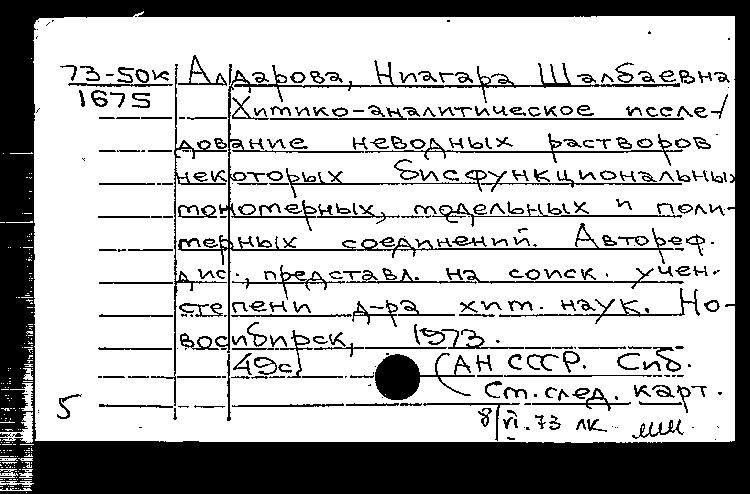 73-50к Алдарова, Ниагара Шалбаевна
1675 Химико-аналитическое иссле-
дование неводных растворов
некоторых бисфункциональных
мономерных, модельных и поли-
мерных соединений. Автореф.
дис., представл. на соиск. учен.
степени д-ра хим. наук. Но-
восибирск, 1973.
49с. (АН СССР. Сиб.
См. след. карт.
5
8/VI.73 лк